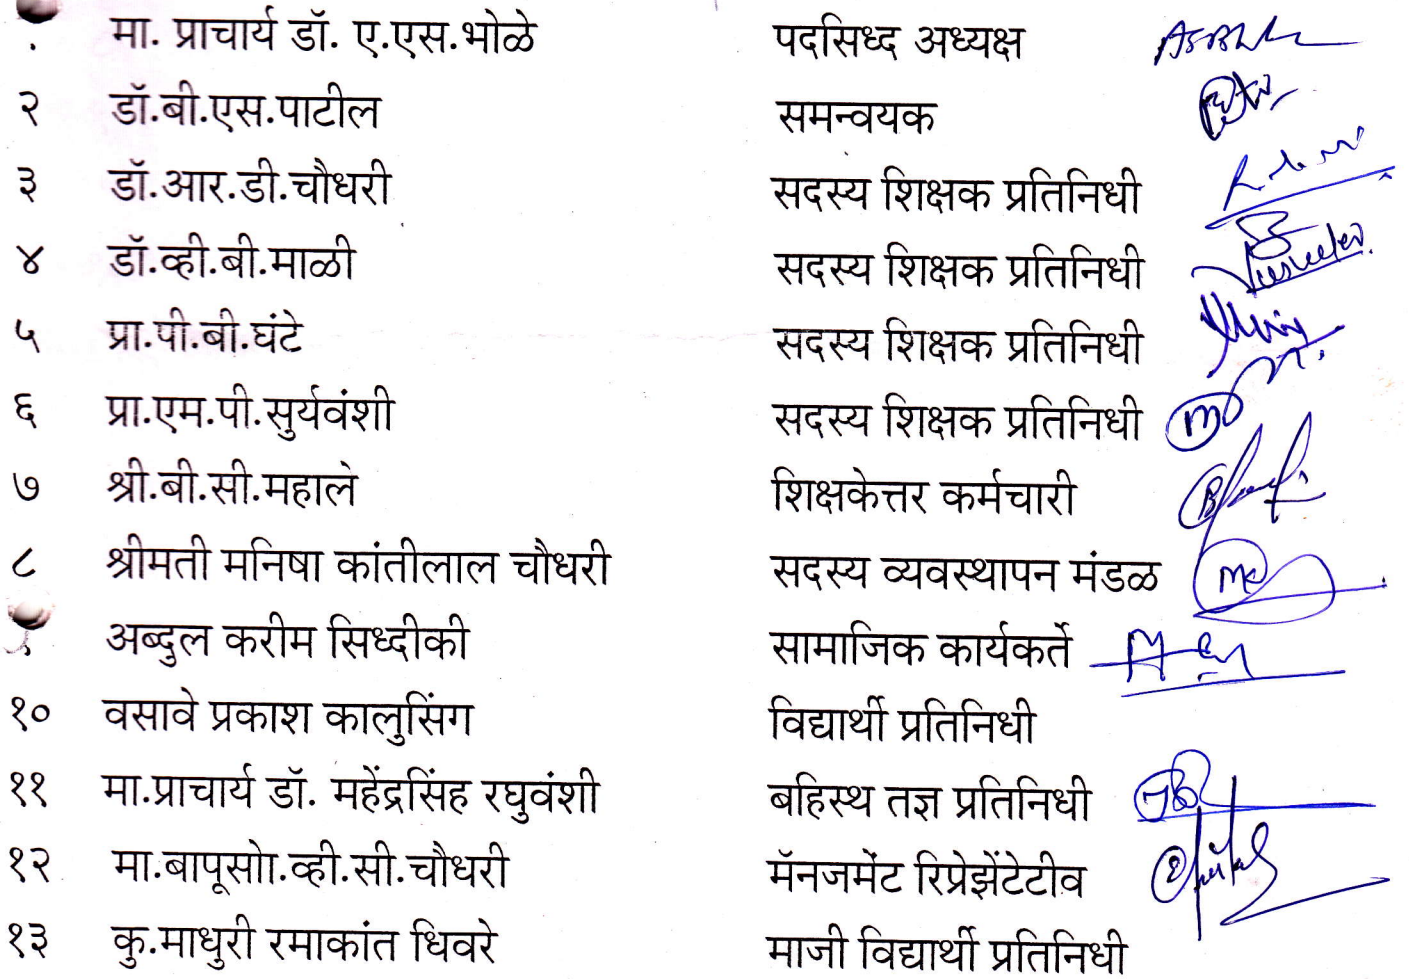 मा. प्राचार्य डॉ. ए.एस.भोळे पदसिध्द अध्यक्ष
२ डॉ.बी.एस.पाटील समन्वयक
३ डॉ.आर.डी.चौधरी सदस्य शिक्षक प्रतिनिधी
४ डॉ.व्ही.बी.माळी सदस्य शिक्षक प्रतिनिधी
५ प्रा.पी.बी.घंटे सदस्य शिक्षक प्रतिनिधी
६ प्रा.एम.पी.सुर्यवंशी सदस्य शिक्षक प्रतिनिधी
७ श्री.बी.सी.महाले शिक्षकेत्तर कर्मचारी
८ श्रीमती मनिषा कांतीलाल चौधरी सदस्य व्यवस्थापन मंडळ
अब्दुल करीम सिध्दीकी सामाजिक कार्यकर्ते
१० वसावे प्रकाश कालुसिंग विद्यार्थी प्रतिनिधी
११ मा.प्राचार्य डॉ. महेंद्रसिंह रघुवंशी बहिस्थ तज्ञ प्रतिनिधी
१२ मा.बापूसाो.व्ही.सी.चौधरी मॅनजमेंट रिप्रेझेंटेटीव
१३ कु.माधुरी रमाकांत धिवरे माजी विद्यार्थी प्रतिनिधी